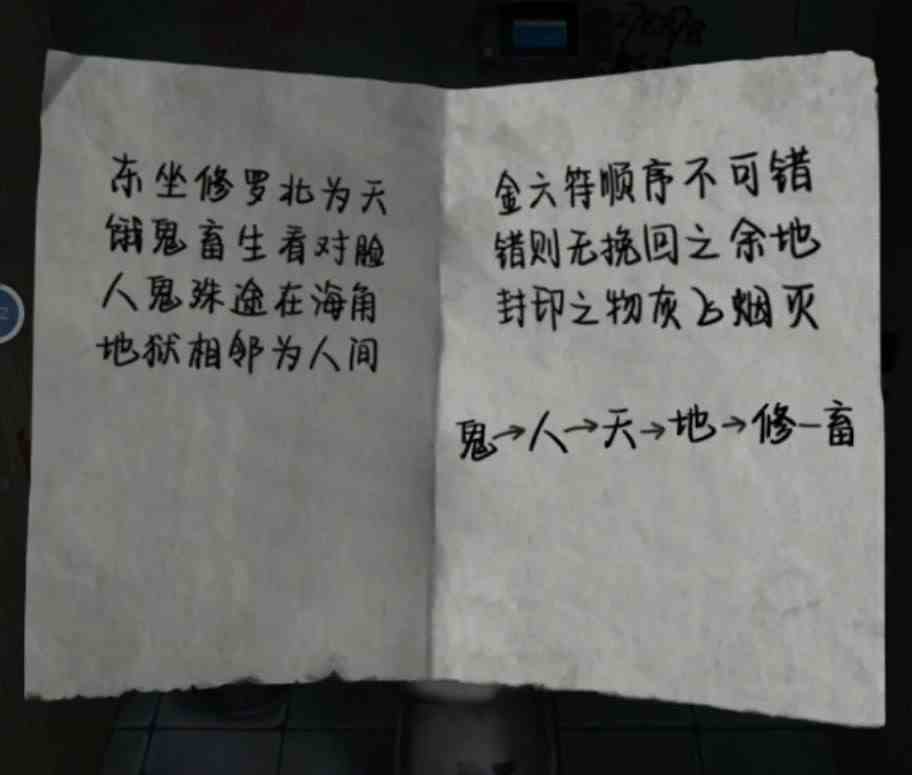 东坐修罗北为天
饿鬼畜生看对脸
人鬼殊途在海角
地狱相邻为人间
金六符顺序不可错
错则无挽回之余地
封印之物灰飞烟灭
鬼→人→天→地→修—畜